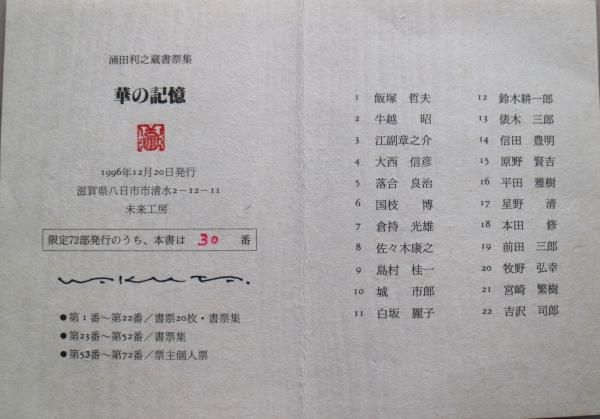 涌田利之蔵書票集
華の記憶
1996年12月20日発行
滋賀県八日市市清水2-12-11
未来工房
限定72部発行のうち、本書は 30 番
WAKUTA.
●第1番〜第22番/書票20枚・書票集
●第23番〜第52番/書票集
●第53番〜第72番/票主個人票
1 飯塚 哲夫
2 牛越 昭
3 江副章之介
4 大西 信彦
5 落合 良治
6 国枝 博
7 倉持 光雄
8 佐々木康之
9 島村 桂一
10 城 市郎
11 白坂 麗子
12 鈴木耕一郎
13 俵木 三郎
14 信田 豊明
15 原野 賢吉
16 平田 雅樹
17 星野 清
18 本田 修
19 前田 三郎
20 牧野 弘幸
21 宮崎 繁樹
22 吉沢 司郎